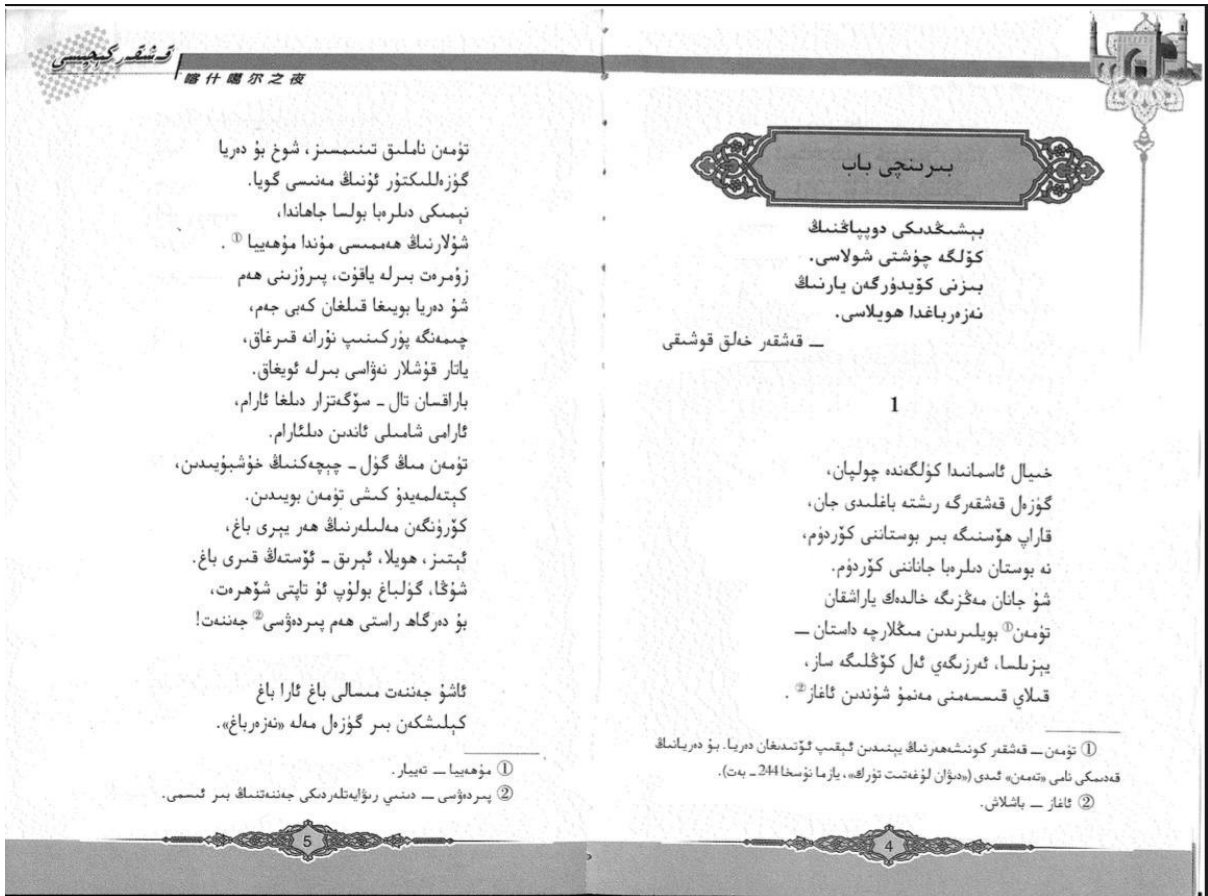 بىرىنچى باب
بېشىڭدىكى دوپپاڭنىڭ
كۆلگە چۈشتى شولاسى.
بىزنى كۆيدۈرگەن يارنىڭ
نەزەرباغدا ھويلاسى.
ــ قەشقەر خەلق قوشىقى
1
خىيال ئاسمانىدا كۈلگەندە چولپان،
گۈزەل قەشقەرگە رىشتە باغلىدى جان،
قاراپ ھۆسنىگە بىر بوستاننى كۆردۈم،
نە بوستان دىلرەبا جاناننى كۆردۈم.
شۇ جانان مەڭزىگە خالدەك ياراشقان
تۈمەن① بويلىرىدىن مىڭلارچە داستان ــ
يېزىلسا، ئەرزىگەي ئەل كۆڭلىگە ساز،
قىلاي قىسسەمنى مەنمۇ شۇندىن ئاغاز②.
① تۈمەن ــ قەشقەر كونىشەھەرنىڭ يېنىدىن ئېقىپ ئۆتىدىغان دەريا. بۇ دەريانىڭ
قەدىمكى نامى «تەمەن» ئىدى («دىۋان لۇغەتىت تۈرك»، يازما نۇسخا 244 ـ بەت).
② ئاغاز ــ باشلاش.
4
قەشقەر كېچىسى
喀什噶尔之夜
تۈمەن ناملىق تىنىمسىز، شوخ بۇ دەريا
گۈزەللىكتۇر ئۇنىڭ مەنىسى گويا.
نېمىكى دىلرەبا بولسا جاھاندا،
شۇلارنىڭ ھەممىسى مۇندا مۇھەييا①.
زۇمرەت بىرلە ياقۇت، پىرۇزىنى ھەم
شۇ دەريا بويىغا قىلغان كەبى جەم،
چىمەنگە پۈركىنىپ نۇرانە قىرغاق،
ياتار قۇشلار نەۋاسى بىرلە ئويغاق.
باراقسان تال ـ سۆگەتزار دىلغا ئارام،
ئارامى شامىلى ئاندىن دىلئارام.
تۈمەن مىڭ گۈل ـ چېچەكنىڭ خۇشبۇيىدىن،
كېتەلمەيدۇ كىشى تۈمەن بويىدىن.
كۆرۈنگەن مەلىلەرنىڭ ھەر يېرى باغ،
ئېتىز، ھويلا، ئېرىق ـ ئۆستەڭ قىرى باغ.
شۇڭا، گۈلباغ بولۇپ ئۇ تاپتى شۆھرەت،
بۇ دەرگاھ راستى ھەم پىردەۋسى② جەننەت!
ئاشۇ جەننەت مىسالى باغ ئارا باغ
كېلىشكەن بىر گۈزەل مەلە «نەزەرباغ».
① مۇھەييا ــ تەييار.
② پىردەۋسى ــ دىنىي رىۋايەتلەردىكى جەننەتنىڭ بىر ئىسمى.
5